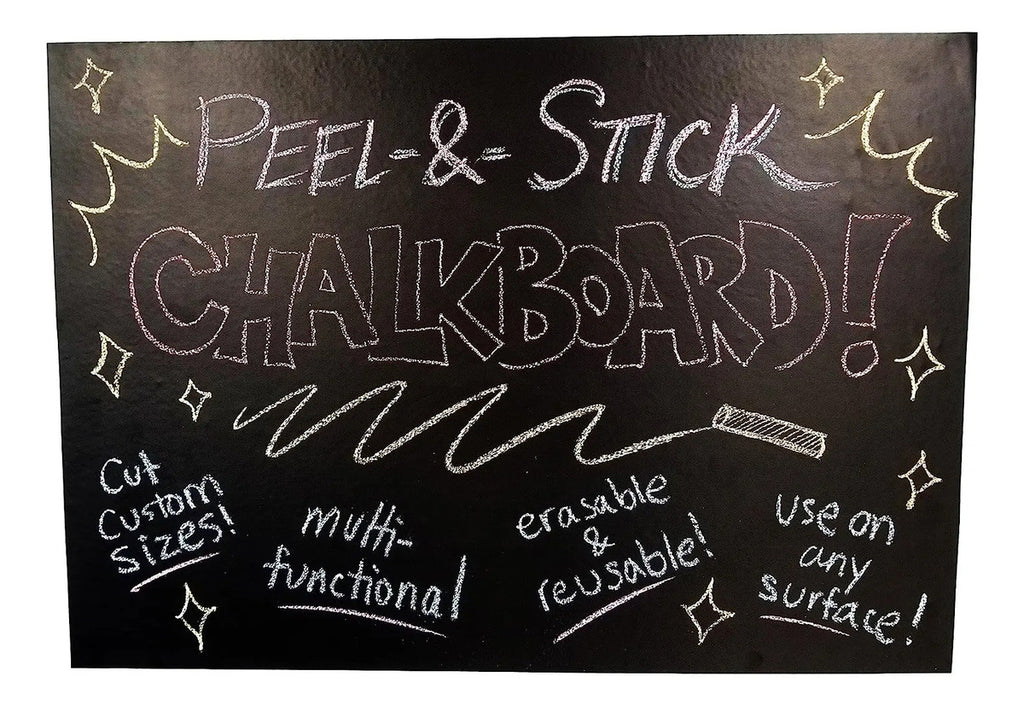 PEEL-&-STICK
CHALKBOARD!
Cut
Custom
sizes!
multi-
functional
erasable
&
reusable!
use on
any
surface!